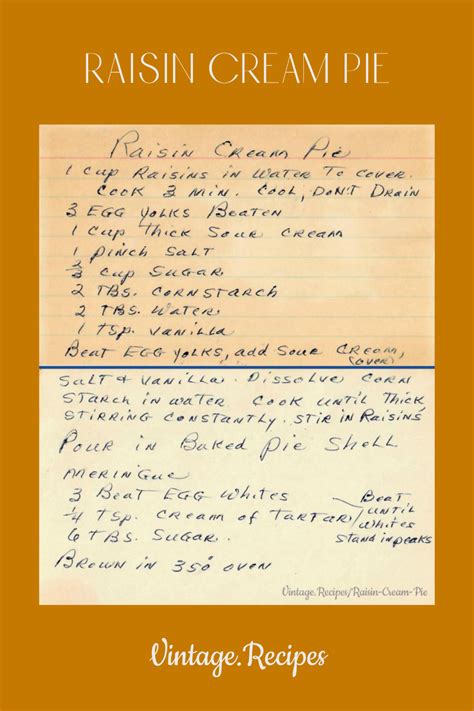 RAISIN CREAM PIE
Raisin Cream Pie
1 Cup Raisins in Water To Cover.
Cook 3 min. Cool, Don't Drain
3 Egg Yolks Beaten
1 Cup Thick Sour Cream
1 pinch Salt
2/3 Cup Sugar
2 TBS. Cornstarch
2 TBS. Water
1 Tsp. Vanilla
Beat Egg Yolks, add Sour Cream,
(over)
Salt & Vanilla. Dissolve Corn
Starch in water. Cook until Thick
Stirring Constantly. Stir in Raisins
Pour in Baked Pie Shell
Meringue
3 Beat Egg Whites
1/4 Tsp. Cream of Tartar
6 TBS. Sugar.
Beat
until
whites
stand in peaks
Brown in 350° oven
Vintage.Recipes/Raisin-Cream-Pie
Vintage.Recipes